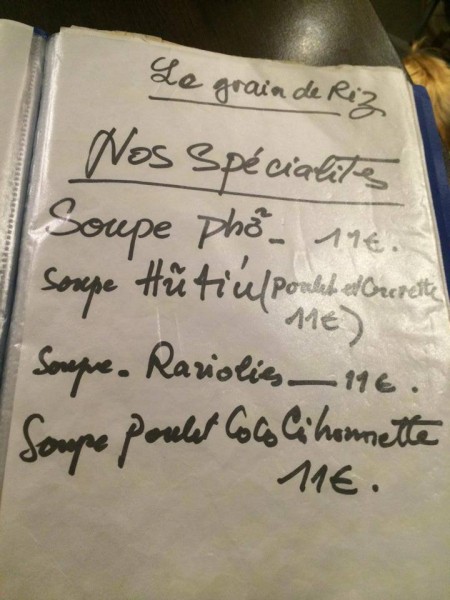 Le grain de Riz
Nos Spécialités
Soupe phở - 11€.
Soupe Hũ tíu (Poulet et Crevette
11€)
Soupe - Raviolies — 11€.
Soupe Poulet Coco Cihonnette
11€.